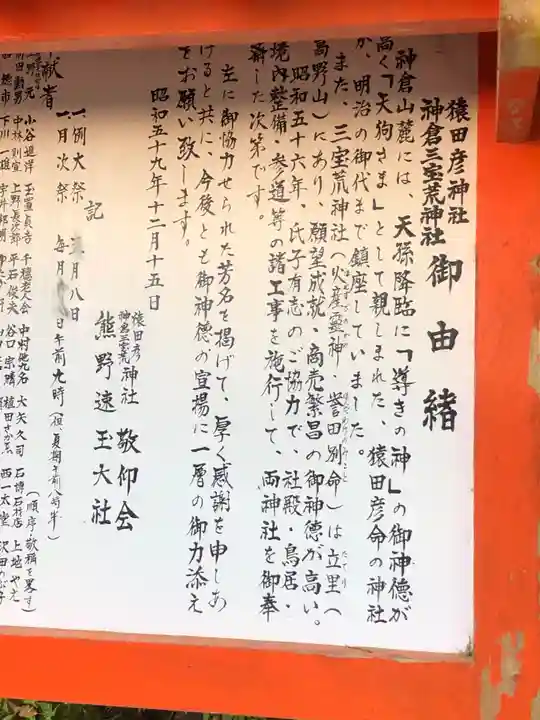 猿田彦神社
神倉三宝荒神社
御由緒
神倉山麓には、天孫降臨に「導きの神」の御神徳が
高く「天狗さま」として親しまれた、猿田彦命の神社
が、明治の御代まで鎮座していました。
また、三宝荒神社(火産霊神 誉田別命)は立里(
たてり
高野山)にあり、願望成就、商売繁昌の御神徳が高い。
昭和五十六年、氏子有志のご協力で、社殿・鳥居・
境内整備・参道等の諸工事を施行して、両神社を御奉
斎した次第です。
左に御協力せられた芳名を掲げて、厚く感謝を申しあ
げると共に、今後とも御神徳の宣揚に一層の御力添え
をお願い致します。
昭和五十九年十二月十五日
猿田彦
神倉三宝荒
神社 敬仰会
熊野速玉大社
記
一、例大祭 月八日
一、月次祭 毎月 日午前九時(但、夏期午前八時半)
献者
(順序敬称を畧す)
小谷 玉置貞吉 千穂老人会 中村他九名 大矢久司 石博石材店 上地やえ
中林則宣 上野長次郎 平石俊夫 谷口宗晴 植田さかゑ 西一太堂 沢田
下川一雄